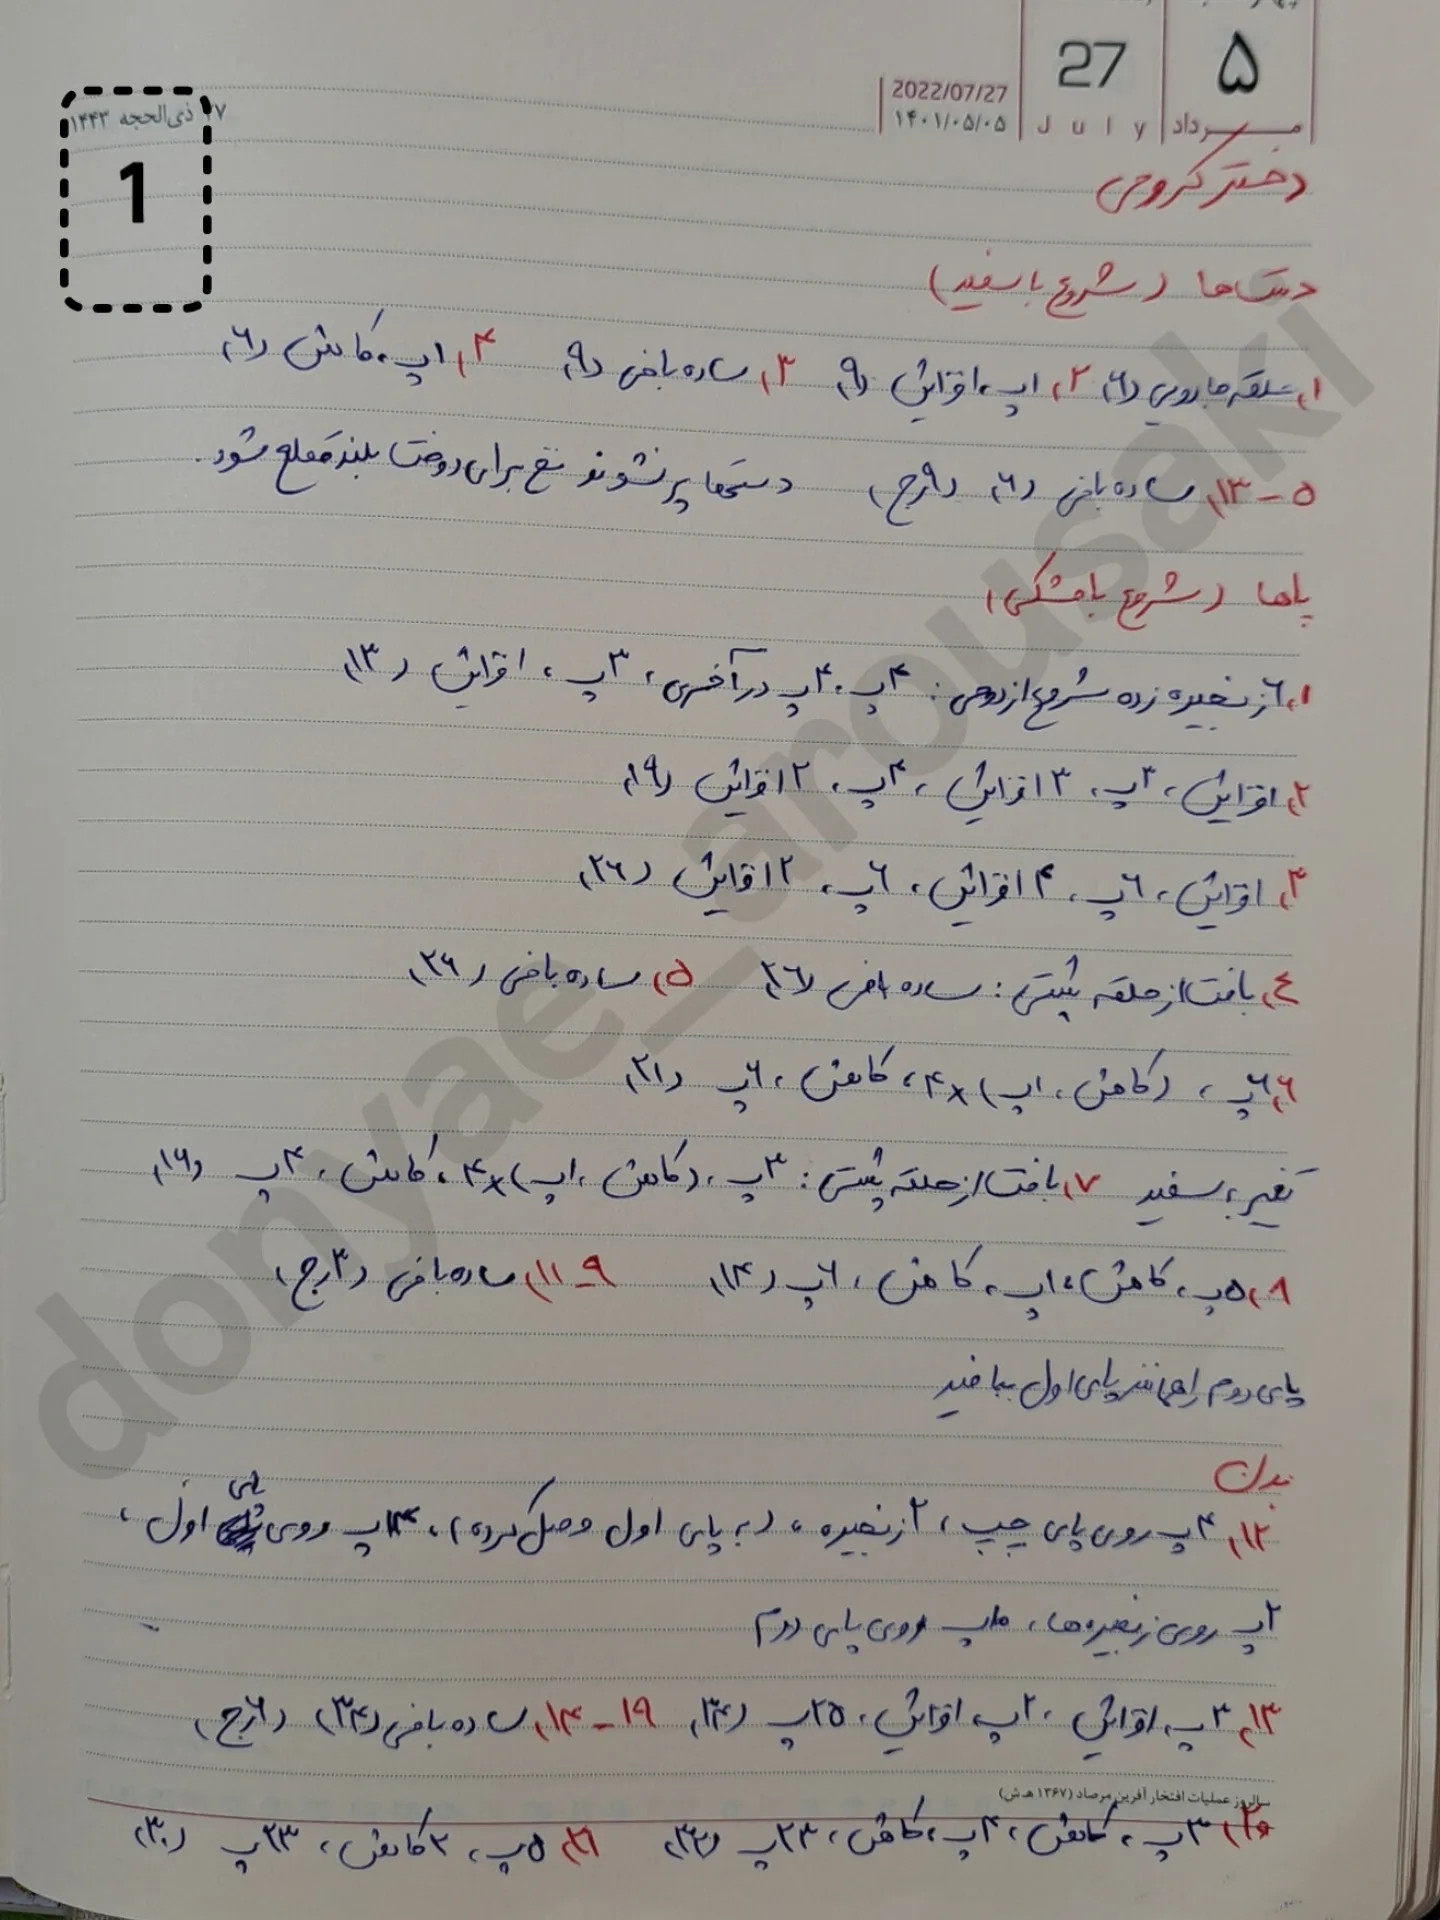 ۵
27
2022/07/27
۱۴۰۱/۰۵/۰۵
July
مرداد
۲۷ ذی‌الحجه ۱۴۴۳
1
دختر کروجی
دست‌ها (شروع با سفید)
۱) حلقه جادویی (۶) ۲) ۱پ، افزایش (۹) ۳) ساده بافی (۹) ۴) ۱پ، کاهش (۶)
۵-۱۳) ساده بافی (۶) (۹رج) دستها پر نشوند نخ برای دوخت بلند قطع شود.
پاها (شروع با مشکی)
۱) ۶ زنجیره زده شروع از دومی: ۴پ، ۴پ در آخری، ۳پ، افزایش (۱۳)
۲) افزایش، ۴پ، ۳ افزایش، ۴پ، ۲ افزایش (۱۹)
۳) افزایش، ۶پ، ۴ افزایش، ۶پ، ۲ افزایش (۲۶)
۴) بافت از حلقه پشتی: ساده بافی (۲۶) ۵) ساده بافی (۲۶)
۶) ۶پ، (کاهش، ۱پ)×۴، کاهش، ۶پ (۲۱)
تغیر به سفید ۷) بافت از حلقه پشتی: ۳پ، (کاهش، ۱پ)×۴، کاهش، ۴پ (۱۶)
۸) ۵پ، کاهش، ۱پ، کاهش، ۶پ (۱۴) ۹-۱۱) ساده بافی (۳رج)
پای دوم را همانند پای اول ببافید
بدن
۱۲) ۴پ روی پای چپ، ۲ زنجیره، (به پای اول وصل کرده)، ۱۴پ روی پای اول،
۲پ روی زنجیره‌ها، ۱۰پ روی پای دوم
۱۳) ۳پ، افزایش، ۲پ، افزایش، ۲۵پ (۳۴) ۱۴-۱۹) ساده بافی (۳۴) (۶رج)
سالروز عملیات افتخار آفرین مرصاد (۱۳۶۷ ه‍.ش)
۲۰) ۳پ، کاهش، ۴پ، کاهش، ۲۳پ (۳۲) ۲۱) ۵پ، ۲ کاهش، ۲۳پ (۳۰)
donyae_arousaki